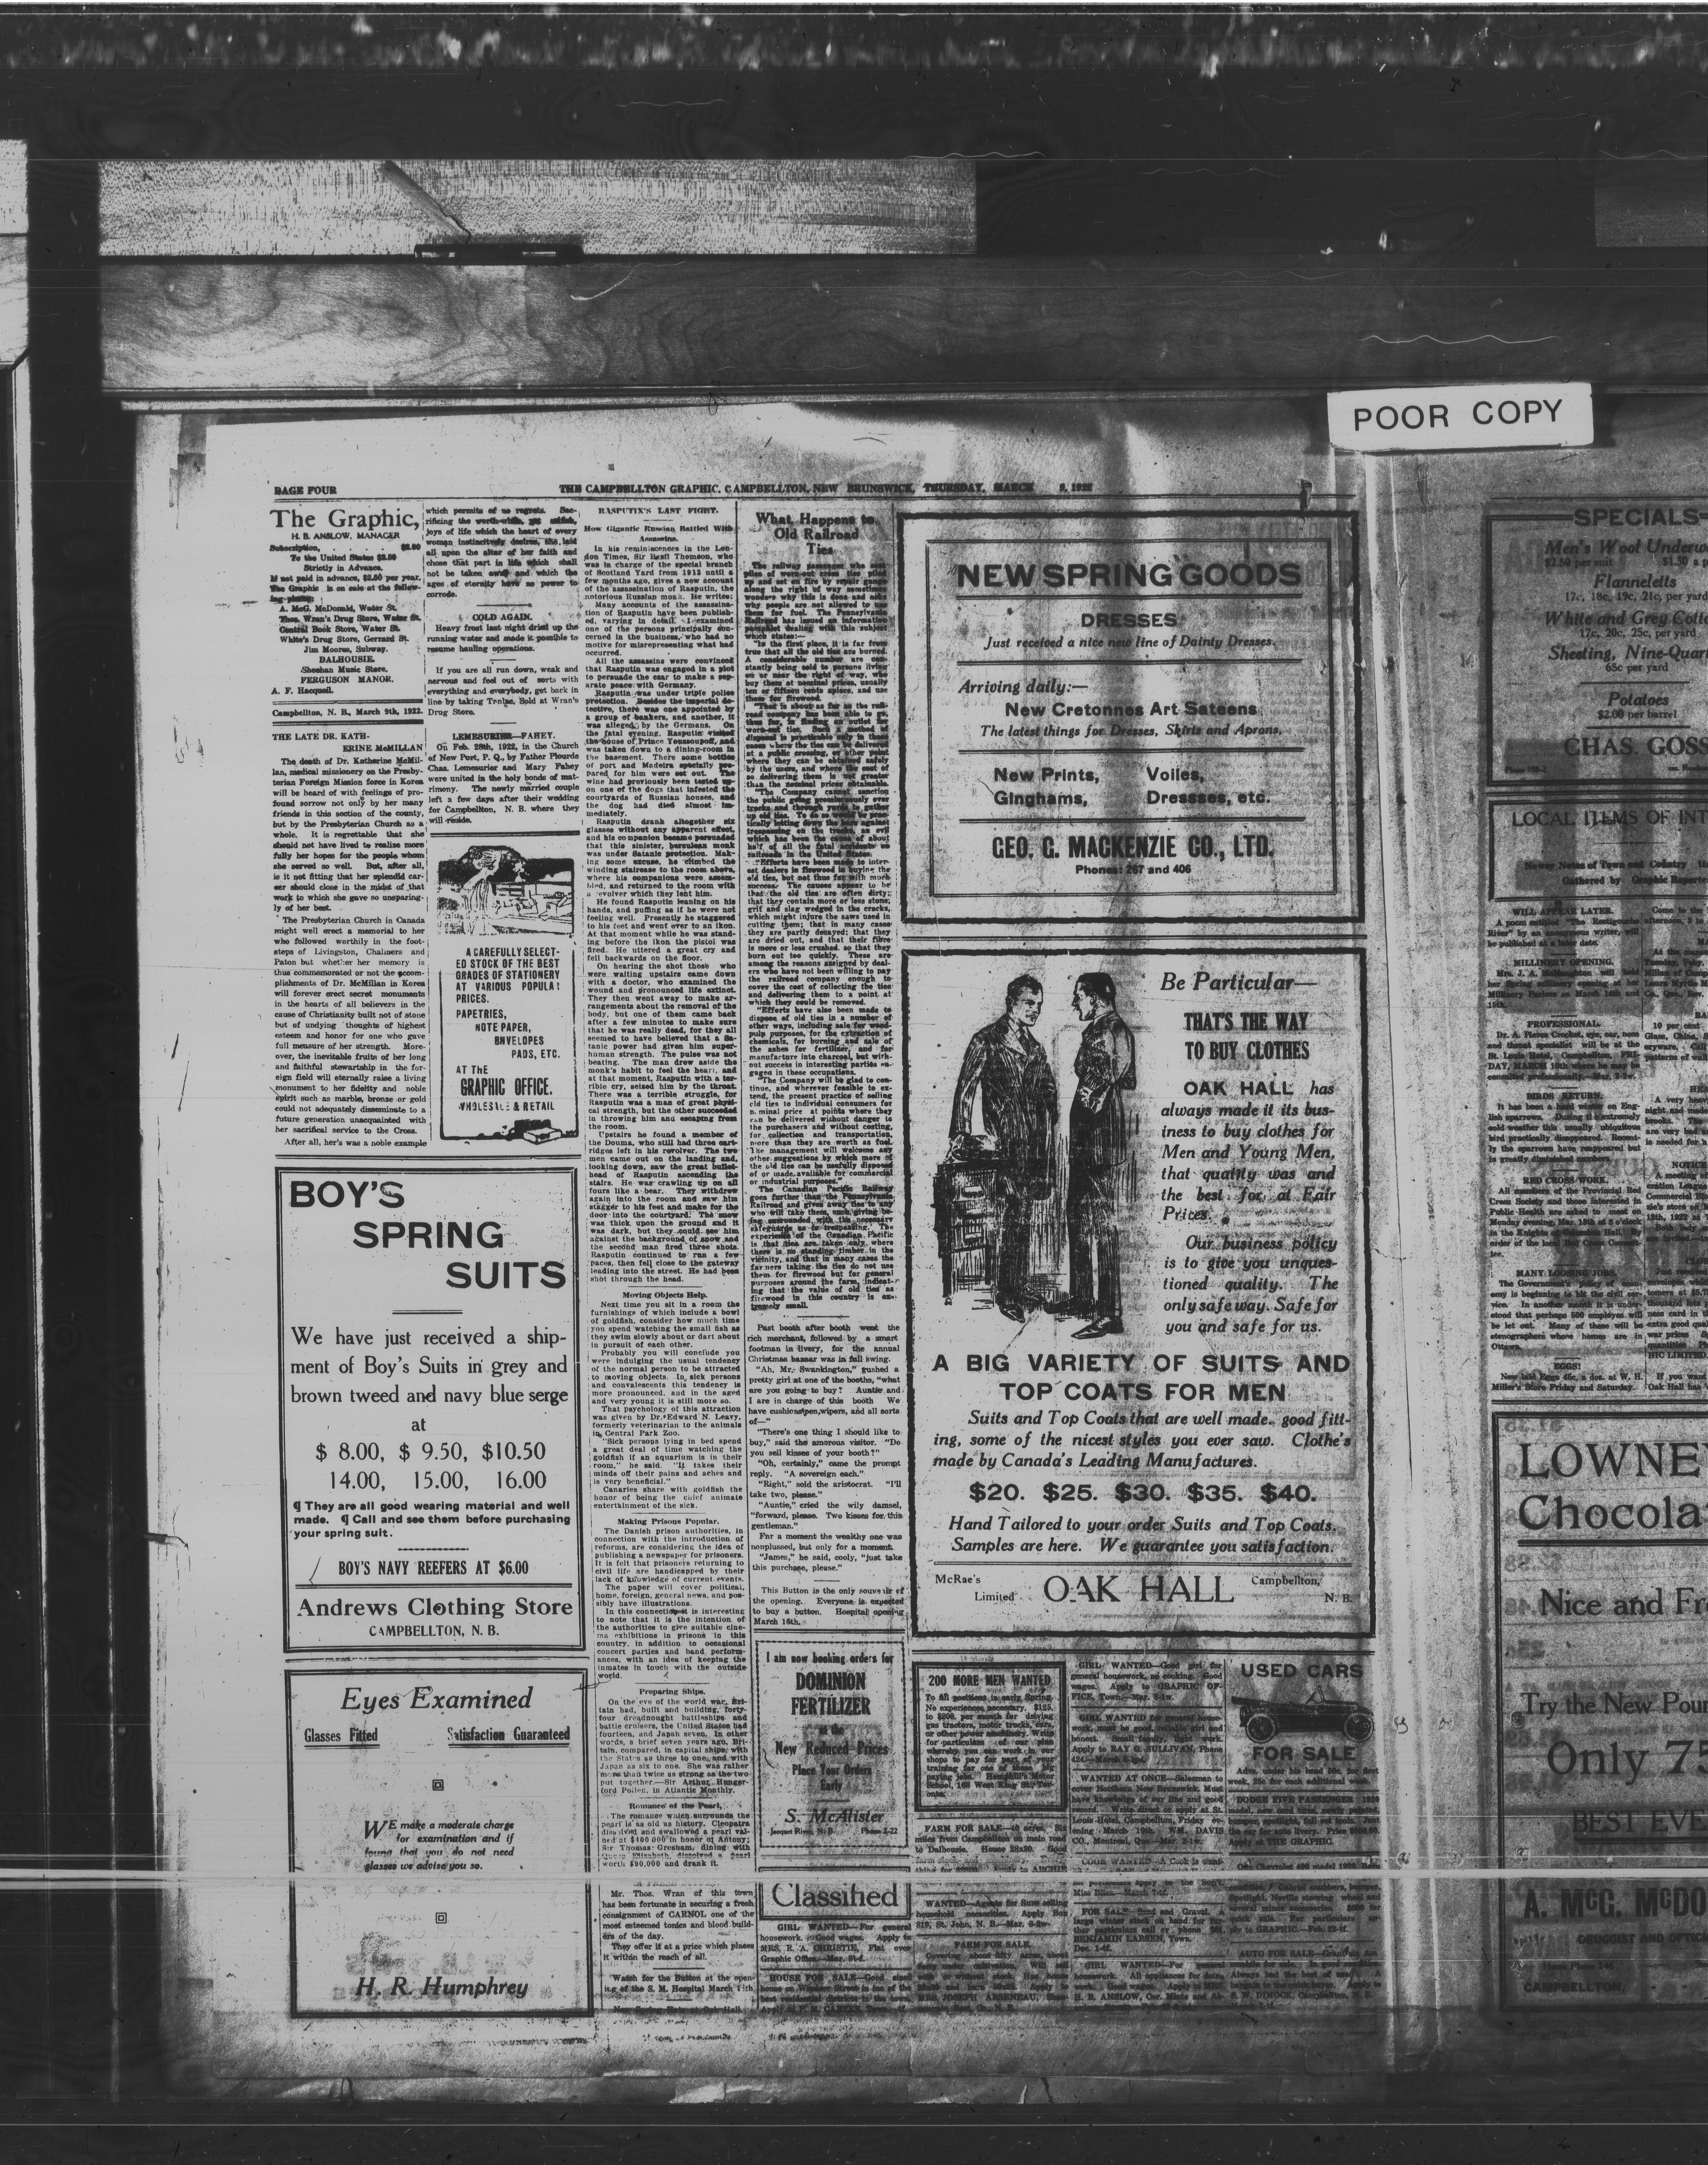 POOR COPY
PAGE FOUR
THE CAMPBELLTON GRAPHIC, CAMPBELLTON, NEW BRUNSWICK, THURSDAY, MARCH 9, 1922
The Graphic,
H. B. ANSLOW, MANAGER
Subscription, $2.00
To the United States $2.50
Strictly in Advance.
If not paid in advance, $2.50 per year.
The Graphic is on sale at the follow-
ing places:
A. McG. McDonald, Water St.
Thos. Wran's Drug Store, Water St.
Central Book Store, Water St.
White's Drug Store, Gerrard St.
Jim Moores, Subway.
DALHOUSIE.
Sheehan Music Store.
FERGUSON MANOR.
A. F. Hacquoil.
Campbellton, N. B., March 9th, 1922.
THE LATE DR. KATH-
ERINE McMILLAN
The death of Dr. Katherine McMil-
lan, medical missionary on the Presby-
terian Foreign Mission force in Korea
will be heard of with feelings of pro-
found sorrow not only by her many
friends in this section of the county,
but by the Presbyterian Church as a
whole. It is regrettable that she
should not have lived to realize more
fully her hopes for the people whom
she served so well. But, after all,
is it not fitting that her splendid car-
eer should close in the midst of that
work to which she gave so unsparing-
ly of her best.
The Presbyterian Church in Canada
might well erect a memorial to her
who followed worthily in the foot-
steps of Livingston, Chalmers and
Paton but whether her memory is
thus commemorated or not the accom-
plishments of Dr. McMillan in Korea
will forever erect secret monuments
in the hearts of all believers in the
cause of Christianity built not of stone
but of undying thoughts of highest
esteem and honor for one who gave
full measure of her strength. More-
over, the inevitable fruits of her long
and faithful stewartship in the for-
eign field will eternally raise a living
monument to her fidelity and noble
spirit such as marble, bronze or gold
could not adequately disseminate to a
future generation unacquainted with
her sacrifical service to the Cross.
After all, her's was a noble example
which permits of no regrets. Sac-
rificing the worth-while, yet selfish,
joys of life which the heart of every
woman instinctively desires, she laid
all upon the altar of her faith and
chose that part in life which shall
not be taken away and which the
ages of eternity have no power to
corrode.
COLD AGAIN.
Heavy frost last night dried up the
running water and made it possible to
resume hauling operations.
If you are all run down, weak and
nervous and feel out of sorts with
everything and everybody, get back in
line by taking Tanlac. Sold at Wran's
Drug Store.
LEMESURIER—FAHEY.
On Feb. 28th, 1922, in the Church
of New Port, P. Q., by Father Plourde
Chas. Lemesurier and Mary Fahey
were united in the holy bonds of mat-
rimony. The newly married couple
left a few days after their wedding
for Campbellton, N. B. where they
will reside.
A CAREFULLY SELECT-
ED STOCK OF THE BEST
GRADES OF STATIONERY
AT VARIOUS POPULAR
PRICES.
PAPETRIES,
NOTE PAPER,
ENVELOPES
PADS, ETC.
AT THE
GRAPHIC OFFICE.
WHOLESALE & RETAIL
BOY'S
SPRING
SUITS
We have just received a ship-
ment of Boy's Suits in grey and
brown tweed and navy blue serge
at
$ 8.00, $ 9.50, $10.50
14.00, 15.00, 16.00
¶ They are all good wearing material and well
made. ¶ Call and see them before purchasing
your spring suit.
BOY'S NAVY REEFERS AT $6.00
Andrews Clothing Store
CAMPBELLTON, N. B.
Eyes Examined
Glasses Fitted Satisfaction Guaranteed
WE make a moderate charge
for examination and if
found that you do not need
glasses we advise you so.
H. R. Humphrey
RASPUTIN'S LAST FIGHT.
How Gigantic Russian Battled With
Assassins.
In his reminiscences in the Lon-
don Times, Sir Basil Thomson, who
was in charge of the special branch
of Scotland Yard from 1913 until a
few months ago, gives a new account
of the assassination of Rasputin, the
notorious Russian monk. He writes:
Many accounts of the assassina-
tion of Rasputin have been publish-
ed, varying in detail. I examined
one of the persons principally con-
cerned in the business, who had no
motive for misrepresenting what had
occurred.
All the assassins were convinced
that Rasputin was engaged in a plot
to persuade the czar to make a sep-
arate peace with Germany.
Rasputin was under triple police
protection. Besides the imperial de-
tective, there was one appointed by
a group of bankers, and another, it
was alleged, by the Germans. On
the fatal evening, Rasputin visited
the house of Prince Youssoupoff, and
was taken down to a dining-room in
the basement. There some bottles
of port and Madeira specially pre-
pared for him were set out. The
wine had previously been tested up-
on one of the dogs that infested the
courtyards of Russian houses, and
the dog had died almost im-
mediately.
Rasputin drank altogether six
glasses without any apparent effect,
and his companion became persuaded
that this sinister, herculean monk
was under Satanic protection. Mak-
ing some excuse, he climbed the
winding staircase to the room above,
where his companions were assem-
bled, and returned to the room with
a revolver which they lent him.
He found Rasputin leaning on his
hands, and puffing as if he were not
feeling well. Presently he staggered
to his feet and went over to an ikon.
At that moment while he was stand-
ing before the ikon the pistol was
fired. He uttered a great cry and
fell backwards on the floor.
On hearing the shot those who
were waiting upstairs came down
with a doctor, who examined the
wound and pronounced life extinct.
They then went away to make ar-
rangements about the removal of the
body, but one of them came back
after a few minutes to make sure
that he was really dead, for they all
seemed to have believed that a Sa-
tanic power had given him super-
human strength. The pulse was not
beating. The man drew aside the
monk's habit to feel the heart, and
at that moment, Rasputin with a ter-
rible cry, seized him by the throat.
There was a terrible struggle, for
Rasputin was a man of great physi-
cal strength, but the other succeeded
in throwing him and escaping from
the room.
Upstairs he found a member of
the Douma, who still had three cart-
ridges left in his revolver. The two
men came out on the landing and,
looking down, saw the great bullet-
head of Rasputin ascending the
stairs. He was crawling up on all
fours like a bear. They withdrew
again into the room and saw him
stagger to his feet and make for the
door into the courtyard. The snow
was thick upon the ground and it
was dark, but they could see him
against the background of snow and
the second man fired three shots.
Rasputin continued to run a few
paces, then fell close to the gateway
leading into the street. He had been
shot through the head.
Moving Objects Help.
Next time you sit in a room the
furnishings of which include a bowl
of goldfish, consider how much time
you spend watching the small fish as
they swim slowly about or dart about
in pursuit of each other.
Probably you will conclude you
were indulging the usual tendency
of the normal person to be attracted
to moving objects. In sick persons
and convalescents this tendency is
more pronounced, and in the aged
and very young it is still more so.
That psychology of this attraction
was given by Dr. Edward N. Leavy,
formerly veterinarian to the animals
in Central Park Zoo.
"Sick persons lying in bed spend
a great deal of time watching the
goldfish if an aquarium is in their
room," he said. "It takes their
minds off their pains and aches and
is very beneficial."
Canaries share with goldfish the
honor of being the chief animate
entertainment of the sick.
Making Prisons Popular.
The Danish prison authorities, in
connection with the introduction of
reforms, are considering the idea of
publishing a newspaper for prisoners.
It is felt that prisoners returning to
civil life are handicapped by their
lack of knowledge of current events.
The paper will cover political,
home, foreign, general news, and pos-
sibly have illustrations.
In this connection it is interesting
to note that it is the intention of
the authorities to give suitable cine-
ma exhibitions in prisons in this
country, in addition to occasional
concert parties and band perform-
ances, with an idea of keeping the
inmates in touch with the outside
world.
Preparing Ships.
On the eve of the world war, Bri-
tain had, built and building, forty-
four dreadnought battleships and
battle cruisers, the United States had
fourteen, and Japan seven. In other
words, a brief seven years ago, Bri-
tain, compared, in capital ships, with
the States as three to one, and with
Japan as six to one. She was rather
more than twice as strong as the two
put together.—Sir Arthur Hunger-
ford Pollen, in Atlantic Monthly.
Romance of the Pearl.
The romance which surrounds the
pearl is as old as history. Cleopatra
dissolved and swallowed a pearl val-
ued at $400,000 in honor of Antony;
Sir Thomas Gresham, dining with
Queen Elizabeth, dissolved a pearl
worth $90,000 and drank it.
Mr. Thos. Wran of this town
has been fortunate in securing a fresh
consignment of CARNOL one of the
most esteemed tonics and blood build-
ers of the day.
They offer it at a price which places
it within the reach of all.
Watch for the Button at the open-
ing of the S. M. Hospital March 16th
What Happens to
Old Railroad
Ties
The railway passenger who sees
piles of worn-out cross ties piled
up and set on fire by repair gangs
along the right of way sometimes
wonders why this is done and asks
why people are not allowed to use
them for fuel. The Pennsylvania
Railroad has issued an information
pamphlet dealing with this subject
which states:—
"In the first place, it is far from
true that all the old ties are burned.
A considerable number are con-
stantly being sold to persons living
on or near the right of way, who
buy them at nominal prices, usually
ten or fifteen cents apiece, and use
them for firewood.
"That is about as far as the rail-
road company has been able to go,
thus far, in finding an outlet for
worn-out ties. Such a method of
disposal is practicable only in those
cases where the ties can be delivered
at a public crossing, or other point
where they can be obtained safely
by the users, and where the cost of
so delivering them is not greater
than the nominal prices obtainable.
"The Company cannot sanction
the public going promiscuously over
tracks and through yards to gather
up old ties. To do so would be prac-
tically letting down the bars against
trespassing on the tracks, an evil
which has been the cause of about
half of all the fatal accidents on
railroads in the United States.
"Efforts have been made to inter-
est dealers in firewood in buying the
old ties, but not thus far with much
success. The causes appear to be
that the old ties are often dirty;
that they contain more or less stone,
grit and slag wedged in the cracks,
which might injure the saws used in
cutting them; that in many cases
they are partly decayed; that they
are dried out, and that their fibre
is more or less crushed, so that they
burn out too quickly. These are
among the reasons assigned by deal-
ers who have not been willing to pay
the railroad company enough to
cover the cost of collecting the ties
and delivering them to a point at
which they could be removed.
"Efforts have also been made to
dispose of old ties in a number of
other ways, including sale for wood-
pulp purposes, for the extraction of
chemicals, for burning and sale of
the ashes for fertilizer, and for
manufacture into charcoal, but with-
out success in interesting parties en-
gaged in these occupations.
"The Company will be glad to con-
tinue, and wherever feasible to ex-
tend, the present practice of selling
old ties to individual consumers for
nominal price at points where they
can be delivered without danger to
the purchasers and without costing,
for collection and transportation,
more than they are worth as fuel.
The management will welcome any
other suggestions by which more of
the old ties can be usefully disposed
of or made available for commercial
or industrial purposes."
The Canadian Pacific Railway
goes further than the Pennsylvania
Railroad and gives away ties to any
who will take them, such giving be-
ing surrounded with the necessary
safeguards as to trespassing. The
experience of the Canadian Pacific
is that ties are taken only where
there is no standing timber in the
vicinity, and that in many cases the
farmers taking the ties do not use
them for firewood but for general
purposes around the farm, indicat-
ing that the value of old ties as
firewood in this country is ex-
tremely small.
Past booth after booth went the
rich merchant, followed by a smart
footman in livery, for the annual
Christmas bazaar was in full swing.
"Ah, Mr. Swankington," gushed a
pretty girl at one of the booths, "what
are you going to buy? Auntie and
I are in charge of this booth We
have cushions, pen, wipers, and all sorts
of—"
"There's one thing I should like to
buy," said the amorous visitor. "Do
you sell kisses of your booth?"
"Oh, certainly," came the prompt
reply. "A sovereign each."
"Right," said the aristocrat. "I'll
take two, please."
"Auntie," cried the wily damsel,
"forward, please. Two kisses for this
gentleman."
For a moment the wealthy one was
nonplussed, but only for a moment.
"James," he said, cooly, "just take
this purchase, please."
This Button is the only souvenir of
the opening. Everyone is expected
to buy a button. Hospital opening
March 16th.
I am now booking orders for
DOMINION
FERTILIZER
at the
New Reduced Prices
Place Your Orders
Early
S. McAlister
Jacquet River, N. B. Phone 2-22
Classified
GIRL WANTED—For general
housework. Good wages. Apply to
MRS. R. A. CHRISTIE, Flat over
Graphic Office—Mar. 8tf.
HOUSE FOR SALE—Good sized
house on Windsor Street in one of the
best residential districts of the town.
NEW SPRING GOODS
DRESSES
Just received a nice new line of Dainty Dresses.
Arriving daily:—
New Cretonnes Art Sateens
The latest things for Dresses, Skirts and Aprons.
New Prints, Voiles,
Ginghams, Dressses, etc.
GEO. G. MACKENZIE CO., LTD.
Phones: 267 and 406
Be Particular—
THAT'S THE WAY
TO BUY CLOTHES
OAK HALL has
always made it its bus-
iness to buy clothes for
Men and Young Men,
that quality was and
the best for, at Fair
Prices.
Our business policy
is to give you unques-
tioned quality. The
only safe way. Safe for
you and safe for us.
A BIG VARIETY OF SUITS AND
TOP COATS FOR MEN
Suits and Top Coats that are well made, good fitt-
ing, some of the nicest styles you ever saw. Clothe's
made by Canada's Leading Manufactures.
$20. $25. $30. $35. $40.
Hand Tailored to your order Suits and Top Coats.
Samples are here. We guarantee you satisfaction.
McRae's Limited OAK HALL Campbellton, N. B.
200 MORE MEN WANTED
To fill positions in early Spring.
No experience necessary. $125.
to $200. per month for driving
gas tractors, motor trucks, cars,
or other power machinery. Write
for particulars of our plan
whereby you can work in our
shops to pay for part of your
training for one of these big
paying jobs. Hemphill's Motor
School, 163 West King St., Tor-
onto.
FARM FOR SALE—40 acres, Six
miles from Campbellton on main road
to Dalhousie. House 28x30. Good
WANTED—Agents for Sure selling
household necessities. Apply Box
819, St. John, N. B.—Mar. 8-2w.
FARM FOR SALE.
GIRL WANTED—Good girl for
general housework, no cooking. Good
wages. Apply to GRAPHIC OF-
FICE, Town.—Mar. 8-1w.
GIRL WANTED for general house-
work, must be good, reliable girl and
honest. Small family, light work.
Apply to RAY G. SULLIVAN, Phone
WANTED AT ONCE—Salesman to
cover Northern New Brunswick. Must
have knowledge of our line and good
record. Write direct or apply at St.
Louis Hotel, Campbellton, Friday ev-
ening March 10th. WM. DAVIS
CO., Montreal, Que.—Mar. 2-1w.
COOK WANTED—A Cook is want-
Miss Bliss.—March 7-tf.
FOR SALE—Sand and Gravel. A
large winter stock on hand for fur-
ther particulars call or phone
BENJAMIN LARSEN, Town.
Dec. 1-tf.
GIRL WANTED—For general
housework. All appliances for doing
work. Best wages. Apply to MRS.
H. B. ANSLOW,
USED CARS
FOR SALE
Advs. under his head 50c. for first
week, 25c for each additional week.
DODGE FIVE PASSENGER 1920
Apply at THE GRAPHIC.
One Chevrolet 490 model 1920.
ply to GRAPHIC—Feb. 23-tf.
AUTO FOR SALE
S. W. DIMOCK, Campbellton, N. B.
SPECIALS
Men's Wool Underw
$2.50 per suit $1.50 a p
Flannelets
17c, 18c, 19c, 21c, per yard
White and Grey Cotto
17c, 20c, 25c, per yard
Sheeting, Nine-Quart
65c per yard
Potatoes
$2.00 per barrel
CHAS. GOSS
LOCAL ITEMS OF INT
Newsy Notes of Town and Country
Gathered by Graphic Reporte
WILL APPEAR LATER.
A poem entitled "The Restigouche
River" by an anonymous writer, will
be published at a later date.
MILLINERY OPENING.
Mrs. J. A. McNaughton will hold
her Spring millinery opening at her
Millinery Parlors on March 14th and
15th.
PROFESSIONAL.
Dr. A. Pierce Crocket, eye, ear, nose
and throat specialist will be at the
St. Louis Hotel, Campbellton, FRI-
DAY, MARCH 10th where he may be
consulted professionally.—Mar. 2-2w.
BIRDS RETURN.
It has been a hard winter on Eng-
lish sparrows. During the extremely
cold weather this usually ubiquitous
bird practically disappeared. Recent-
ly the sparrows have reappeared but
in greatly diminished numbers.
RED CROSS WORK.
All members of the Provincial Red
Cross Society and those interested in
Public Health are asked to meet on
Monday evening, Mar. 13th at 8 o'clock
in the Knights of Columbus Hall. By
order of the local Red Cross Commit-
tee.
MANY LOOSING JOBS.
The Government's policy of econ-
omy is beginning to hit the civil ser-
vice. In another month it is under-
stood that perhaps 500 employes will
be let out. Many of these will be
stenographers whose homes are in
Ottawa.
EGGS!
New laid Eggs 45c, a doz. at W. H.
Miller's Store Friday and Saturday.
LOWNEY
Chocola
Nice and Fre
Try the New Pour
Only 75
BEST EVE
A. McG. McDO
DRUGGIST AND OPTICI
CAMPBELLTON,